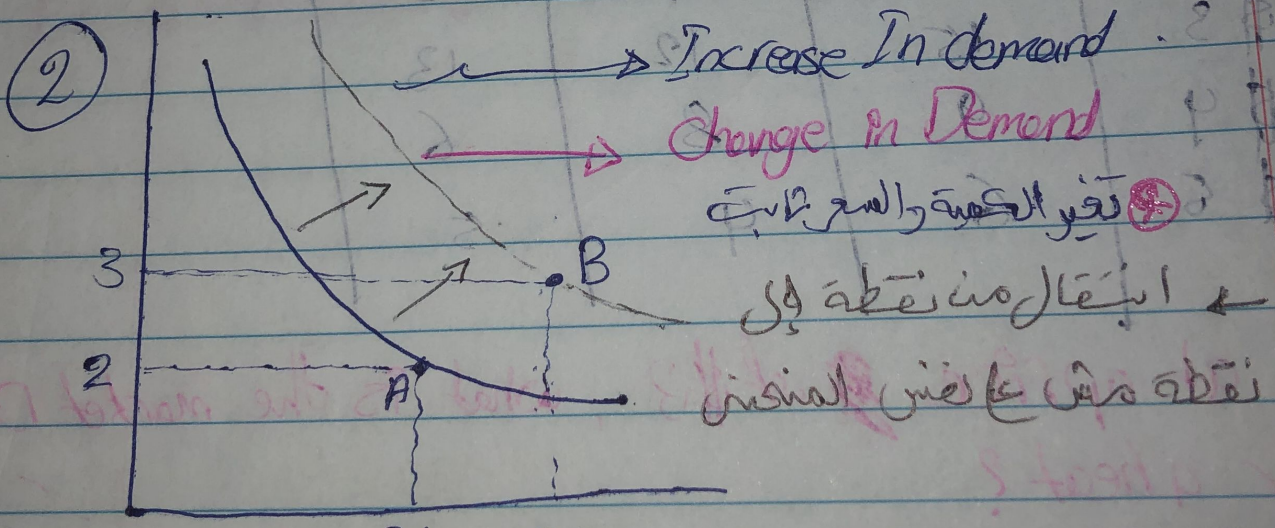 2
Increase In demand.
Change in Demand
تغير الكمية والسعر ثابت
← انتقال من نقطة إلى
نقطة مش ع نفس المنحنى
3
B
2
A